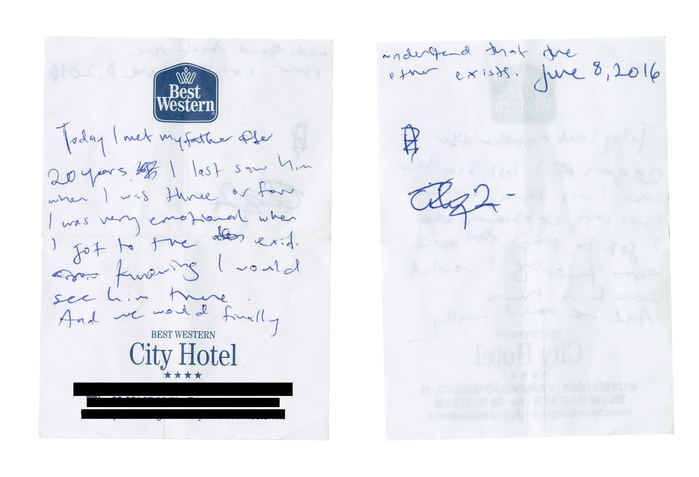 Best
Western
Today I met my father after
20 years I last saw him
when I was three or four
I was very emotional when
I got to the exit.
knowing I would
see him there.
And we would finally
BEST WESTERN
City Hotel
★★★★
understand that the
other exists. June 8, 2016